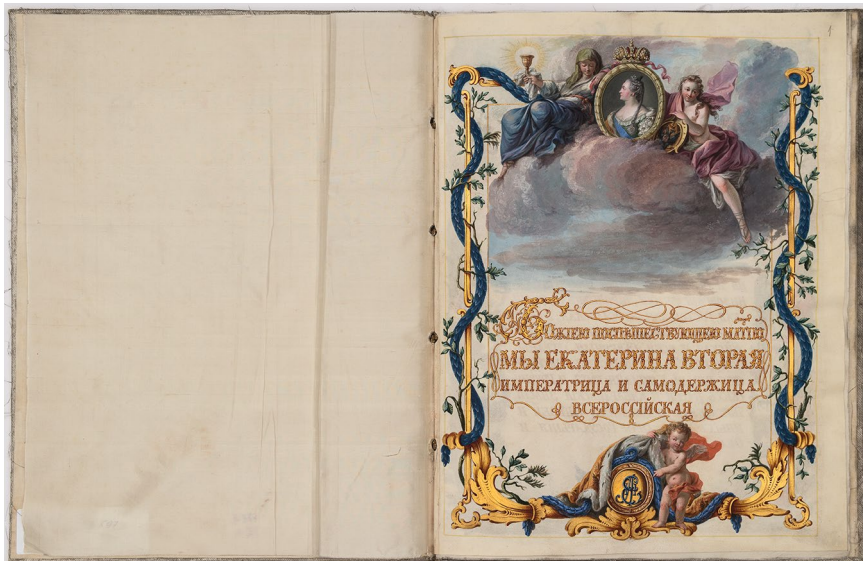 1
БОЖІЕЮ ПОСПѢШЕСТВУЮЩЕЮ МЛТІЮ
МЫ ЕКАТЕРИНА ВТОРАЯ
ИМПЕРАТРИЦА И САМОДЕРЖИЦА
ВСЕРОССІЙСКАЯ